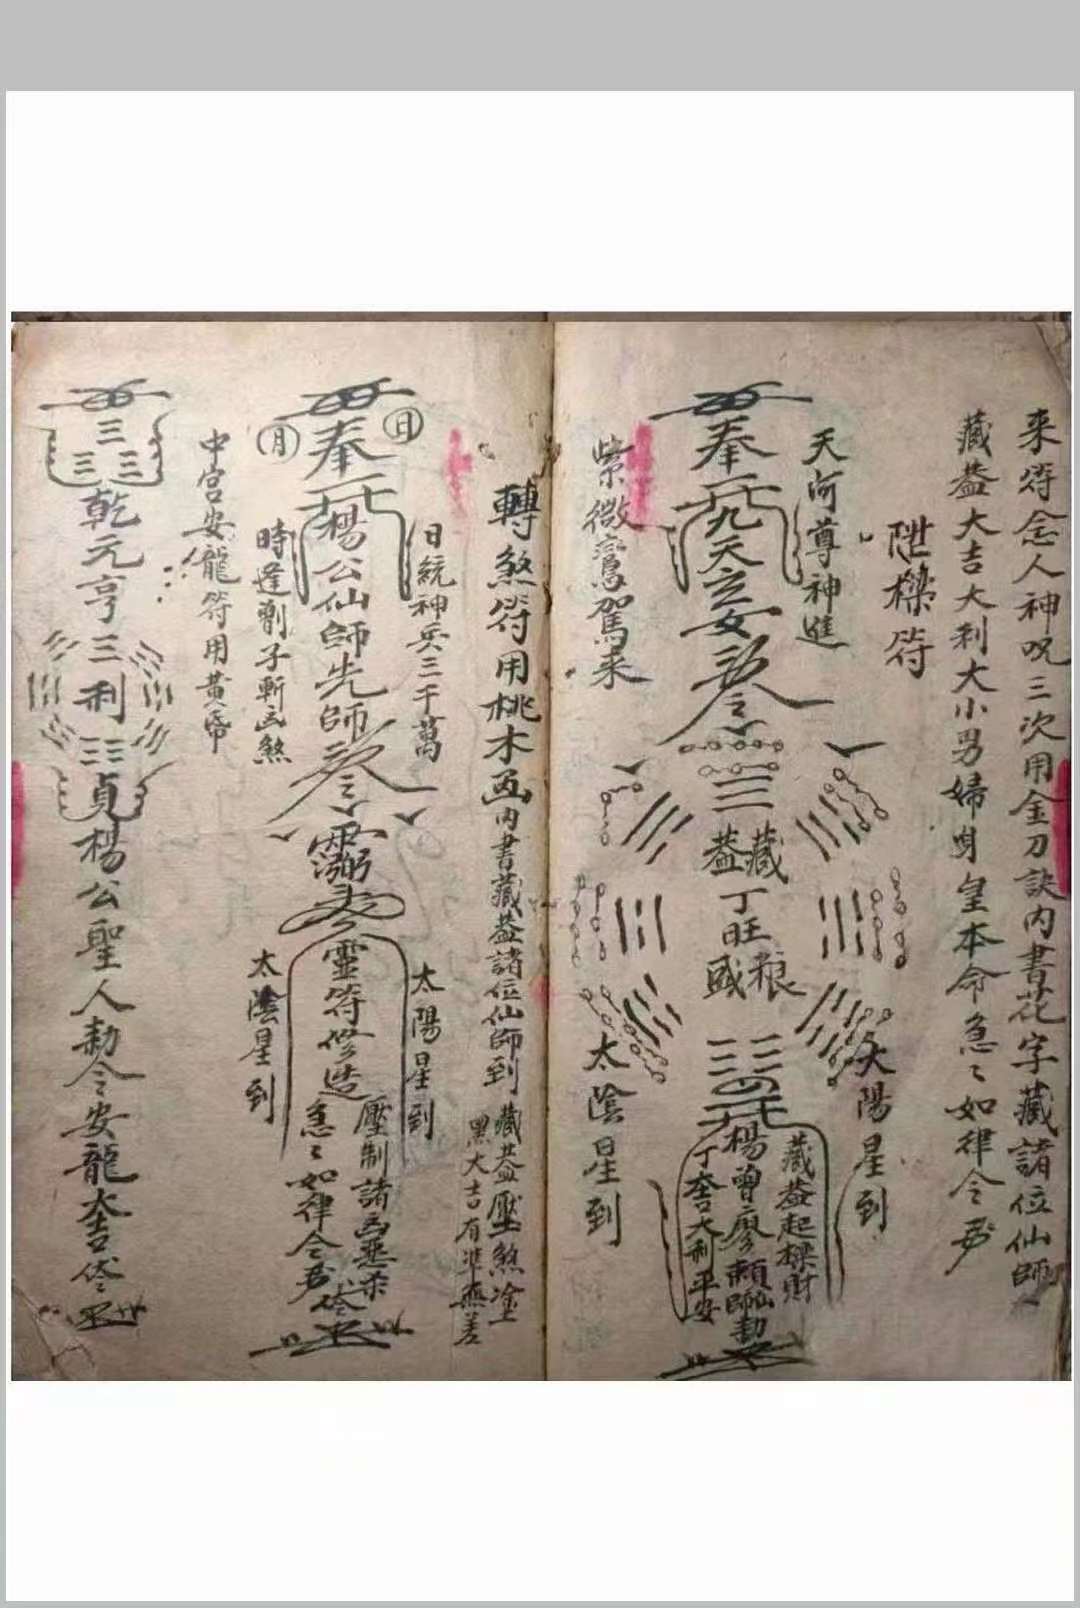 來符念人神咒三次用金刀訣內書花字藏諸位仙師
藏蓋大吉大利大小男婦身皇本命急〻如律令
陞樑符
天河尊神進
奉九天玄女
紫微鸞駕來
藏蓋
丁旺
粮盛
太陽星到
太陰星到
藏蓋起樑財
楊曾廖賴師仙勅
丁大吉大利平安
轉煞符用桃木画內書藏蓋諸位仙師到
藏蓋壓煞塗
黑大吉有準無差
日
月
奉楊公仙師先師
日統神兵三千萬
時逢劊子斬凶煞
靈符修造
壓制諸凶惡煞
急〻如律令
太陽星到
太陰星到
中宮安龍符用黃帋
乾元亨利貞楊公聖人勅令安龍大吉